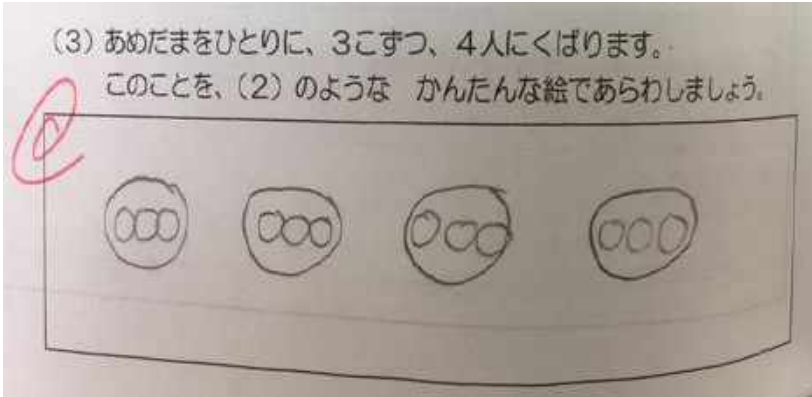 （3）あめだまをひとりに、3こずつ、4人にくばります。
このことを、（2）のような　かんたんな絵であらわしましょう。